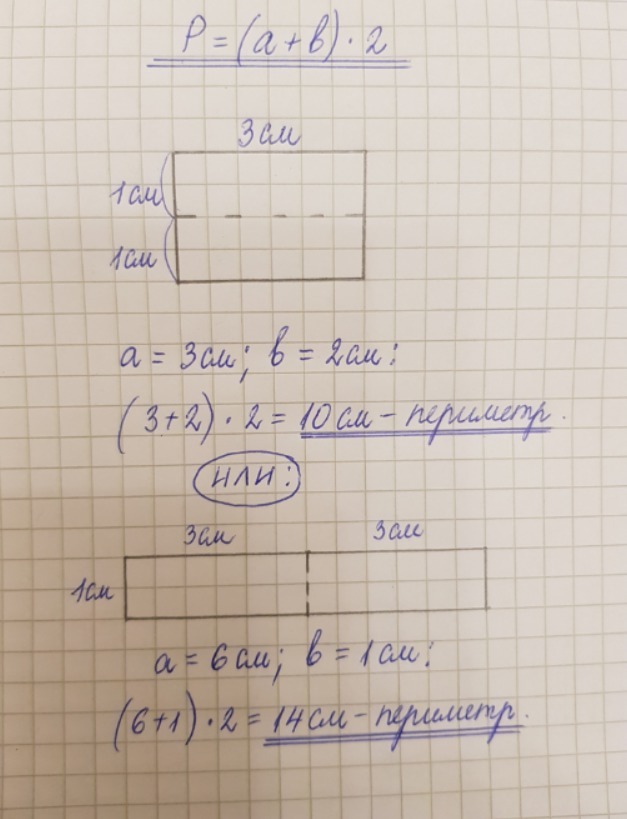 P = (а + в) · 2
3 см
1 см
1 см
а = 3 см; в = 2 см:
(3+2) · 2 = 10 см - периметр.
или:
3 см 3 см
1 см
а = 6 см; в = 1 см:
(6+1) · 2 = 14 см - периметр.